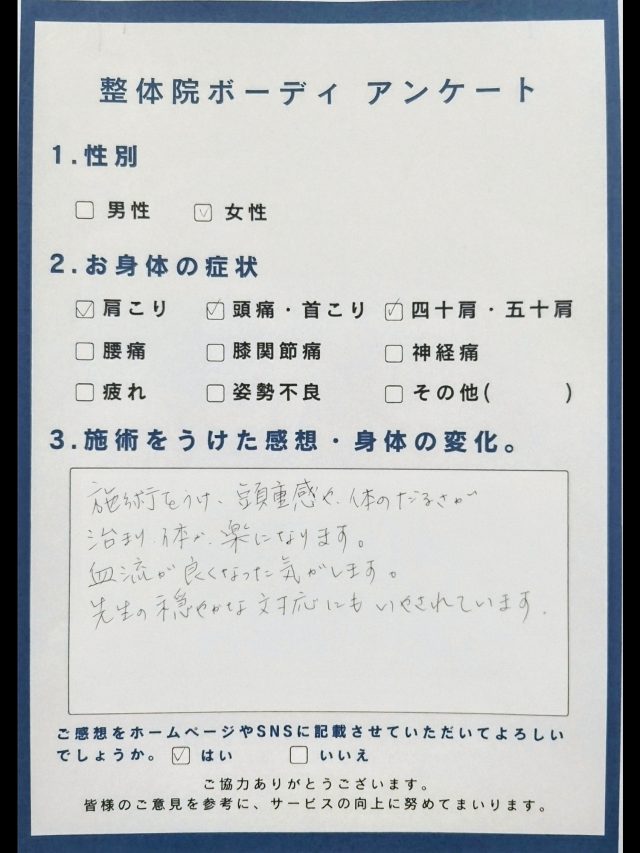 整体院ボーディ アンケート
1.性別
□ 男性 ☑ 女性
2.お身体の症状
☑ 肩こり ☑ 頭痛・首こり ☑ 四十肩・五十肩
□ 腰痛 □ 膝関節痛 □ 神経痛
□ 疲れ □ 姿勢不良 □ その他( )
3.施術をうけた感想・身体の変化。
施術をうけ、頭重感や、体のだるさが
治まり、体が、楽になります。
血流が良くなった気がします。
先生の穏やかな対応にもいやされています.
ご感想をホームページやSNSに記載させていただいてよろしい
でしょうか。 ☑ はい □ いいえ
ご協力ありがとうございます。
皆様のご意見を参考に、サービスの向上に努めてまいります。